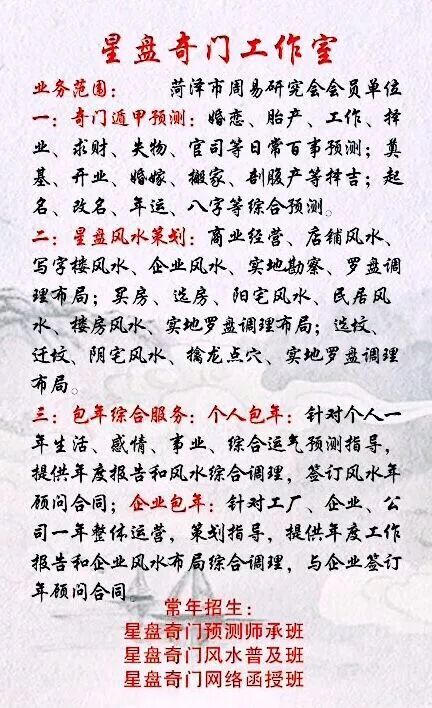 星盘奇门工作室
业务范围：　　菏泽市周易研究会会员单位
一：奇门遁甲预测：婚恋、胎产、工作、择
业、求财、失物、官司等日常百事预测；奠
基、开业、婚嫁、搬家、剖腹产等择吉；起
名、改名、年运、八字等综合预测。
二：星盘风水策划：商业经营、店铺风水、
写字楼风水、企业风水、实地勘察、罗盘调
理布局；买房、选房、阳宅风水、民居风
水、楼房风水、实地罗盘调理布局；选坟、
迁坟、阴宅风水、擒龙点穴、实地罗盘调理
布局。
三：包年综合服务：个人包年：针对个人一
年生活、感情、事业、综合运气预测指导，
提供年度报告和风水综合调理，签订风水年
顾问合同；企业包年：针对工厂、企业、公
司一年整体运营，策划指导，提供年度工作
报告和企业风水布局综合调理，与企业签订
年顾问合同。
常年招生：
星盘奇门预测师承班
星盘奇门风水普及班
星盘奇门网络函授班